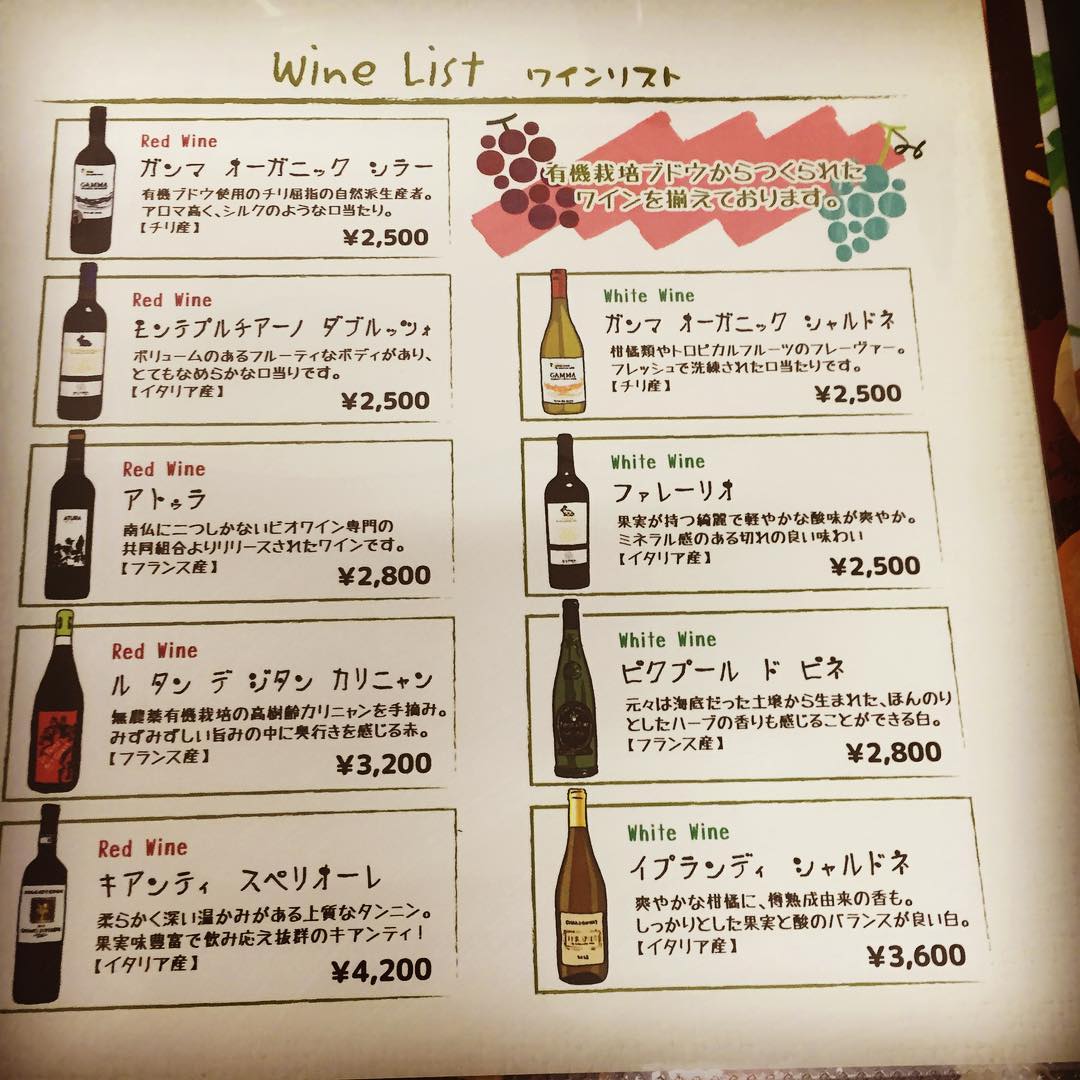 Wine List ワインリスト
Red Wine
ガンマ オーガニック シラー
有機ブドウ使用のチリ屈指の自然派生産者。
アロマ高く、シルクのような口当たり。
【チリ産】
¥2,500
Red Wine
モンテプルチアーノ ダブルッツォ
ボリュームのあるフルーティなボディがあり、
とてもなめらかな口当りです。
【イタリア産】
¥2,500
Red Wine
アトゥラ
南仏に二つしかないビオワイン専門の
共同組合よりリリースされたワインです。
【フランス産】
¥2,800
Red Wine
ル タン デ ジタン カリニャン
無農薬有機栽培の高樹齢カリニャンを手摘み。
みずみずしい旨みの中に奥行きを感じる赤。
【フランス産】
¥3,200
Red Wine
キアンティ スペリオーレ
柔らかく深い温かみがある上質なタンニン。
果実味豊富で飲み応え抜群のキアンティ!
【イタリア産】
¥4,200
有機栽培ブドウからつくられた
ワインを揃えております。
White Wine
ガンマ オーガニック シャルドネ
柑橘類やトロピカルフルーツのフレーヴァー。
フレッシュで洗練された口当たりです。
【チリ産】
¥2,500
White Wine
ファレーリオ
果実が持つ綺麗で軽やかな酸味が爽やか。
ミネラル感のある切れの良い味わい
【イタリア産】
¥2,500
White Wine
ピクプール ド ピネ
元々は海底だった土壌から生まれた、ほんのり
としたハーブの香りも感じることができる白。
【フランス産】
¥2,800
White Wine
イプランディ シャルドネ
爽やかな柑橘に、樽熟成由来の香も。
しっかりとした果実と酸のバランスが良い白。
【イタリア産】
¥3,600
GAMMA
ATURA
GAMMA